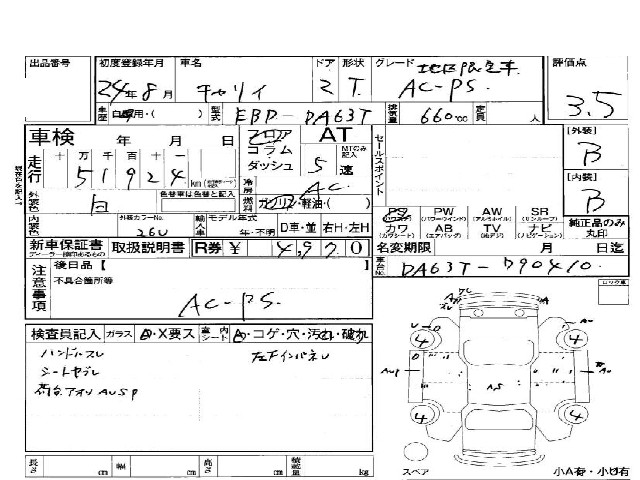 出品番号 初度登録年月 車名 ドア 形状 グレード 評価点
24年8月 キャリィ 2 T. AC-PS. 3.5
車歴 自家用・( ) 型式 EBD-DA63T 排気量 660cc 定員 人
車検 年 月 日 フロア コラム ダッシュ AT MTのみ記入 5速 セールスポイント [外装] B
走行 十 万 千 百 十 一 51924 km
外装色 白 色替車は色替と記入 冷房 AC 燃料 ガソリン・軽油・( ) [内装] B
内装色 外装カラーNo. 26U 輸入車 モデル年式 年・不明 D車・並 右H・左H
PS (パワステ) PW (パワーウインド) AW (アルミホイル) SR (サンルーフ)
カワ (カワシート) AB (エアバッグ) TV (地デジ) ナビ (ナビゲーション) 純正品のみ丸印
新車保証書 ディーラー捺印あるもの 取扱説明書 R券 ¥ 4,970 名変期限 月 日迄
車台No. DA63T-790410
注意事項 後日品 [ ]
不具合箇所等
AC-PS.
ロック車
検査員記入 ガラス A・X要ス 室内シート A・コゲ・穴・汚れ・破れ
ハンドルスレ 左下インパネU
シートヤブレ
荷台アオリAUSP
4 4 4 4
AS
長さ cm 幅 cm 高さ cm 積載量 kg
スペア 小A有・小U有